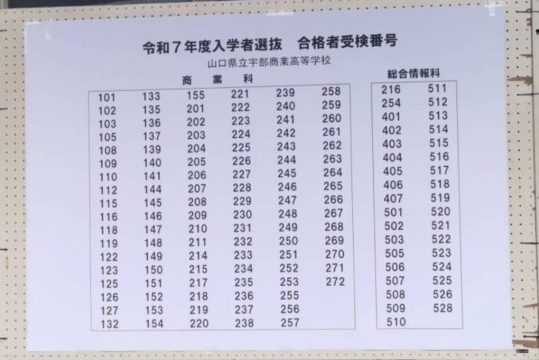 令和7年度入学者選抜 合格者受検番号
山口県立宇部商業高等学校
商業科
総合情報科
101 133 155 221 239 258 216 511
102 135 201 222 240 259 254 512
103 136 202 223 241 260 401 513
105 137 203 224 242 261 402 514
108 139 204 225 243 262 403 515
109 140 205 226 244 263 404 516
110 141 206 227 245 264 405 517
112 144 207 228 246 265 406 518
115 145 208 229 247 266 407 519
116 146 209 230 248 267 501 520
118 147 210 231 249 268 502 521
119 148 211 232 250 269 503 522
122 149 214 233 251 270 505 523
123 150 215 234 252 271 506 524
125 151 217 235 253 272 507 525
126 152 218 236 255 508 526
127 153 219 237 256 509 528
132 154 220 238 257 510